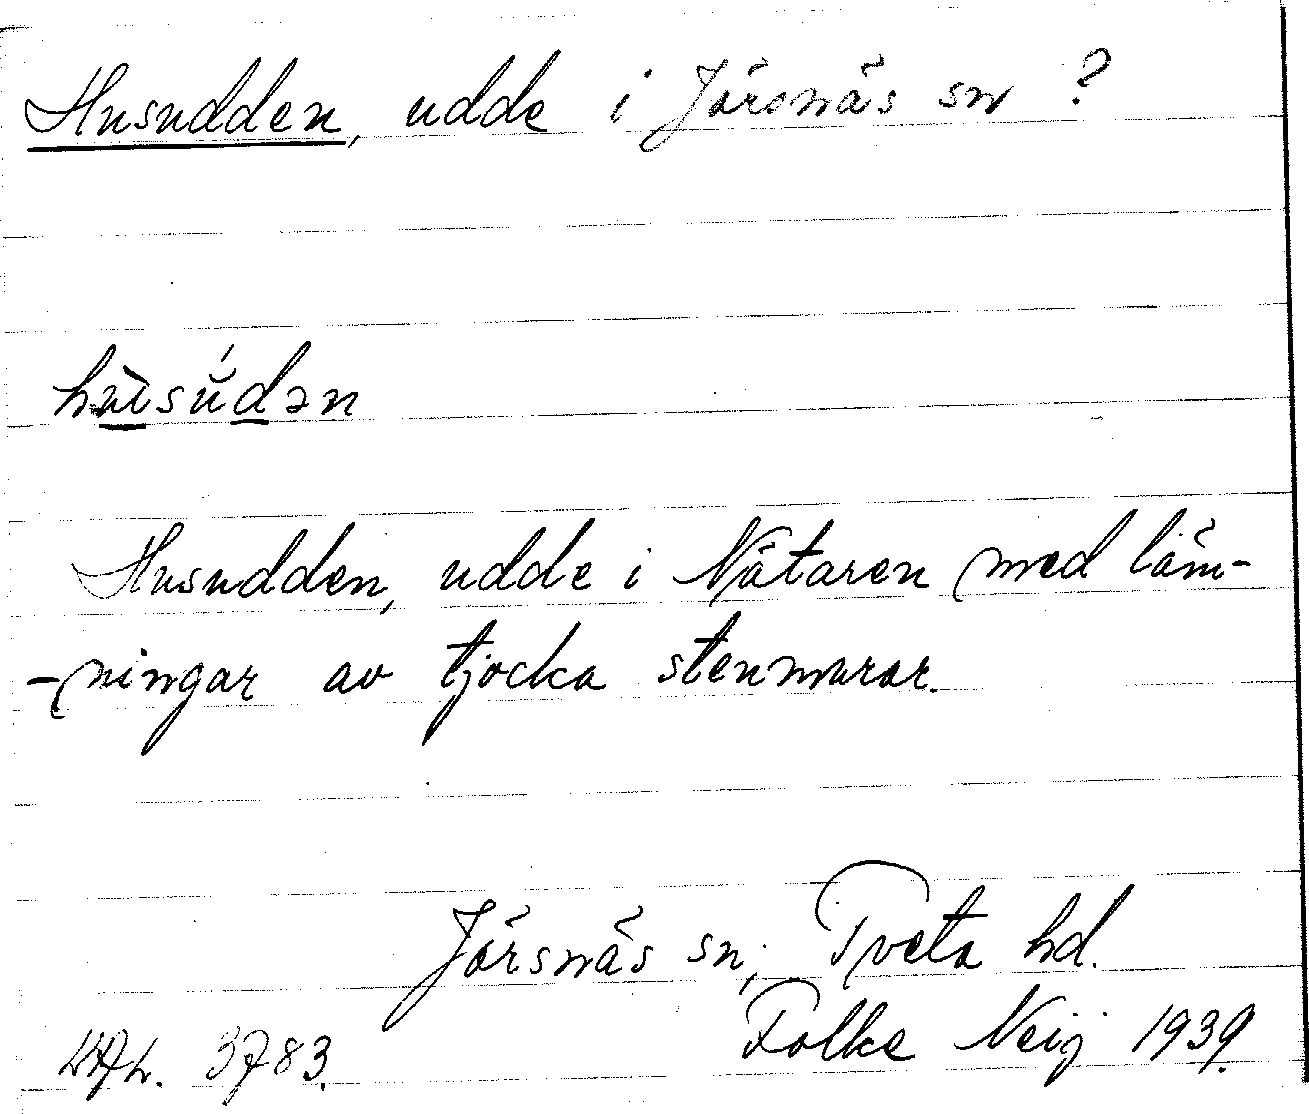 Husudden, udde i Järsnäs sn ?
Husudden, udde i Nätaren med läm-
-ningar av tjocka stenmurar.
Järsnäs sn, Tveta hd.
Folke Neij 1939.
3783.